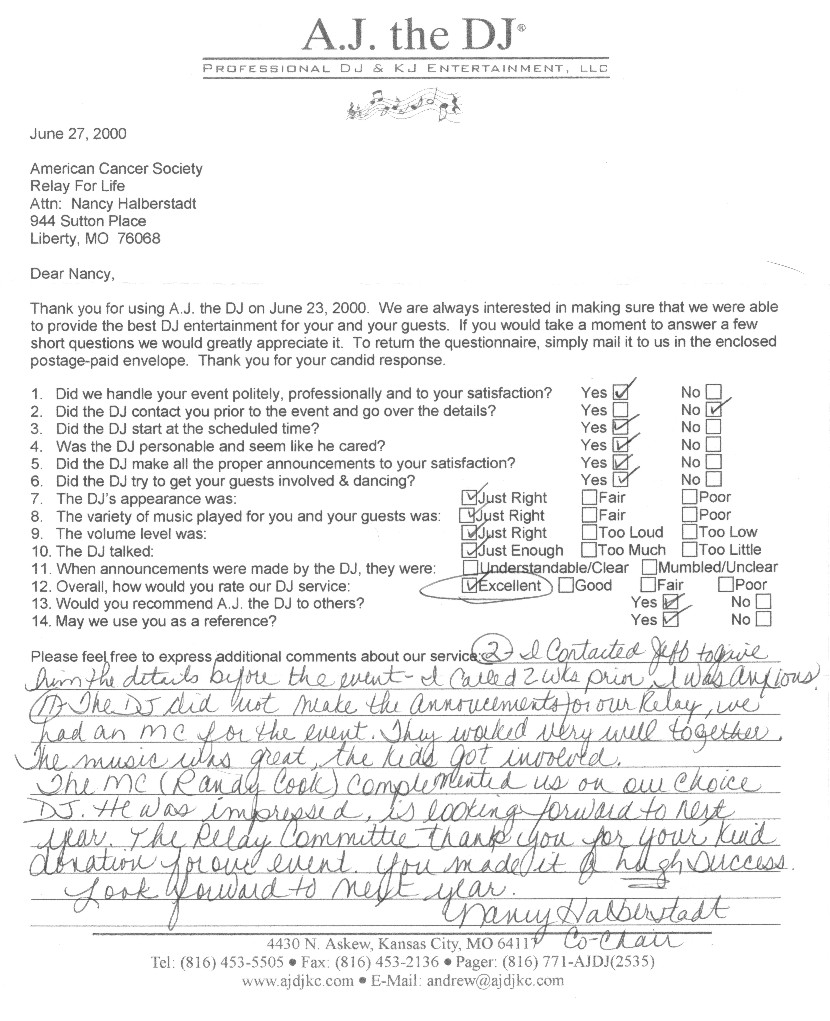 A.J. the DJ®
PROFESSIONAL DJ & KJ ENTERTAINMENT, LLC
June 27, 2000
American Cancer Society
Relay For Life
Attn: Nancy Halberstadt
944 Sutton Place
Liberty, MO 76068
Dear Nancy,
Thank you for using A.J. the DJ on June 23, 2000. We are always interested in making sure that we were able
to provide the best DJ entertainment for your and your guests. If you would take a moment to answer a few
short questions we would greatly appreciate it. To return the questionnaire, simply mail it to us in the enclosed
postage-paid envelope. Thank you for your candid response.
1. Did we handle your event politely, professionally and to your satisfaction? Yes ☑ No ☐
2. Did the DJ contact you prior to the event and go over the details? Yes ☐ No ☑
3. Did the DJ start at the scheduled time? Yes ☑ No ☐
4. Was the DJ personable and seem like he cared? Yes ☑ No ☐
5. Did the DJ make all the proper announcements to your satisfaction? Yes ☑ No ☐
6. Did the DJ try to get your guests involved & dancing? Yes ☑ No ☐
7. The DJ's appearance was: ☑Just Right ☐Fair ☐Poor
8. The variety of music played for you and your guests was: ☑Just Right ☐Fair ☐Poor
9. The volume level was: ☑Just Right ☐Too Loud ☐Too Low
10. The DJ talked: ☑Just Enough ☐Too Much ☐Too Little
11. When announcements were made by the DJ, they were: ☐Understandable/Clear ☐Mumbled/Unclear
12. Overall, how would you rate our DJ service: ☑Excellent ☐Good ☐Fair ☐Poor
13. Would you recommend A.J. the DJ to others? Yes ☑ No ☐
14. May we use you as a reference? Yes ☑ No ☐
Please feel free to express additional comments about our service: 2- I Contacted Jeff to give
him the details before the event - I called 2 wks prior, I was anxious.
11) The DJ did not make the annoucements for our Relay, we
had an MC for the event. They worked very well together.
The music was great, the kids got involved.
The MC (Randy Cook) complemented us on our choice
DJ. He was impressed, is looking forward to next
year. The Relay Committie thank you for your kind
donation for our event. You made it a hugh success.
Look forward to next year.
Nancy Halberstadt
Co-Chair
4430 N. Askew, Kansas City, MO 64117
Tel: (816) 453-5505 • Fax: (816) 453-2136 • Pager: (816) 771-AJDJ(2535)
www.ajdjkc.com • E-Mail: andrew@ajdjkc.com